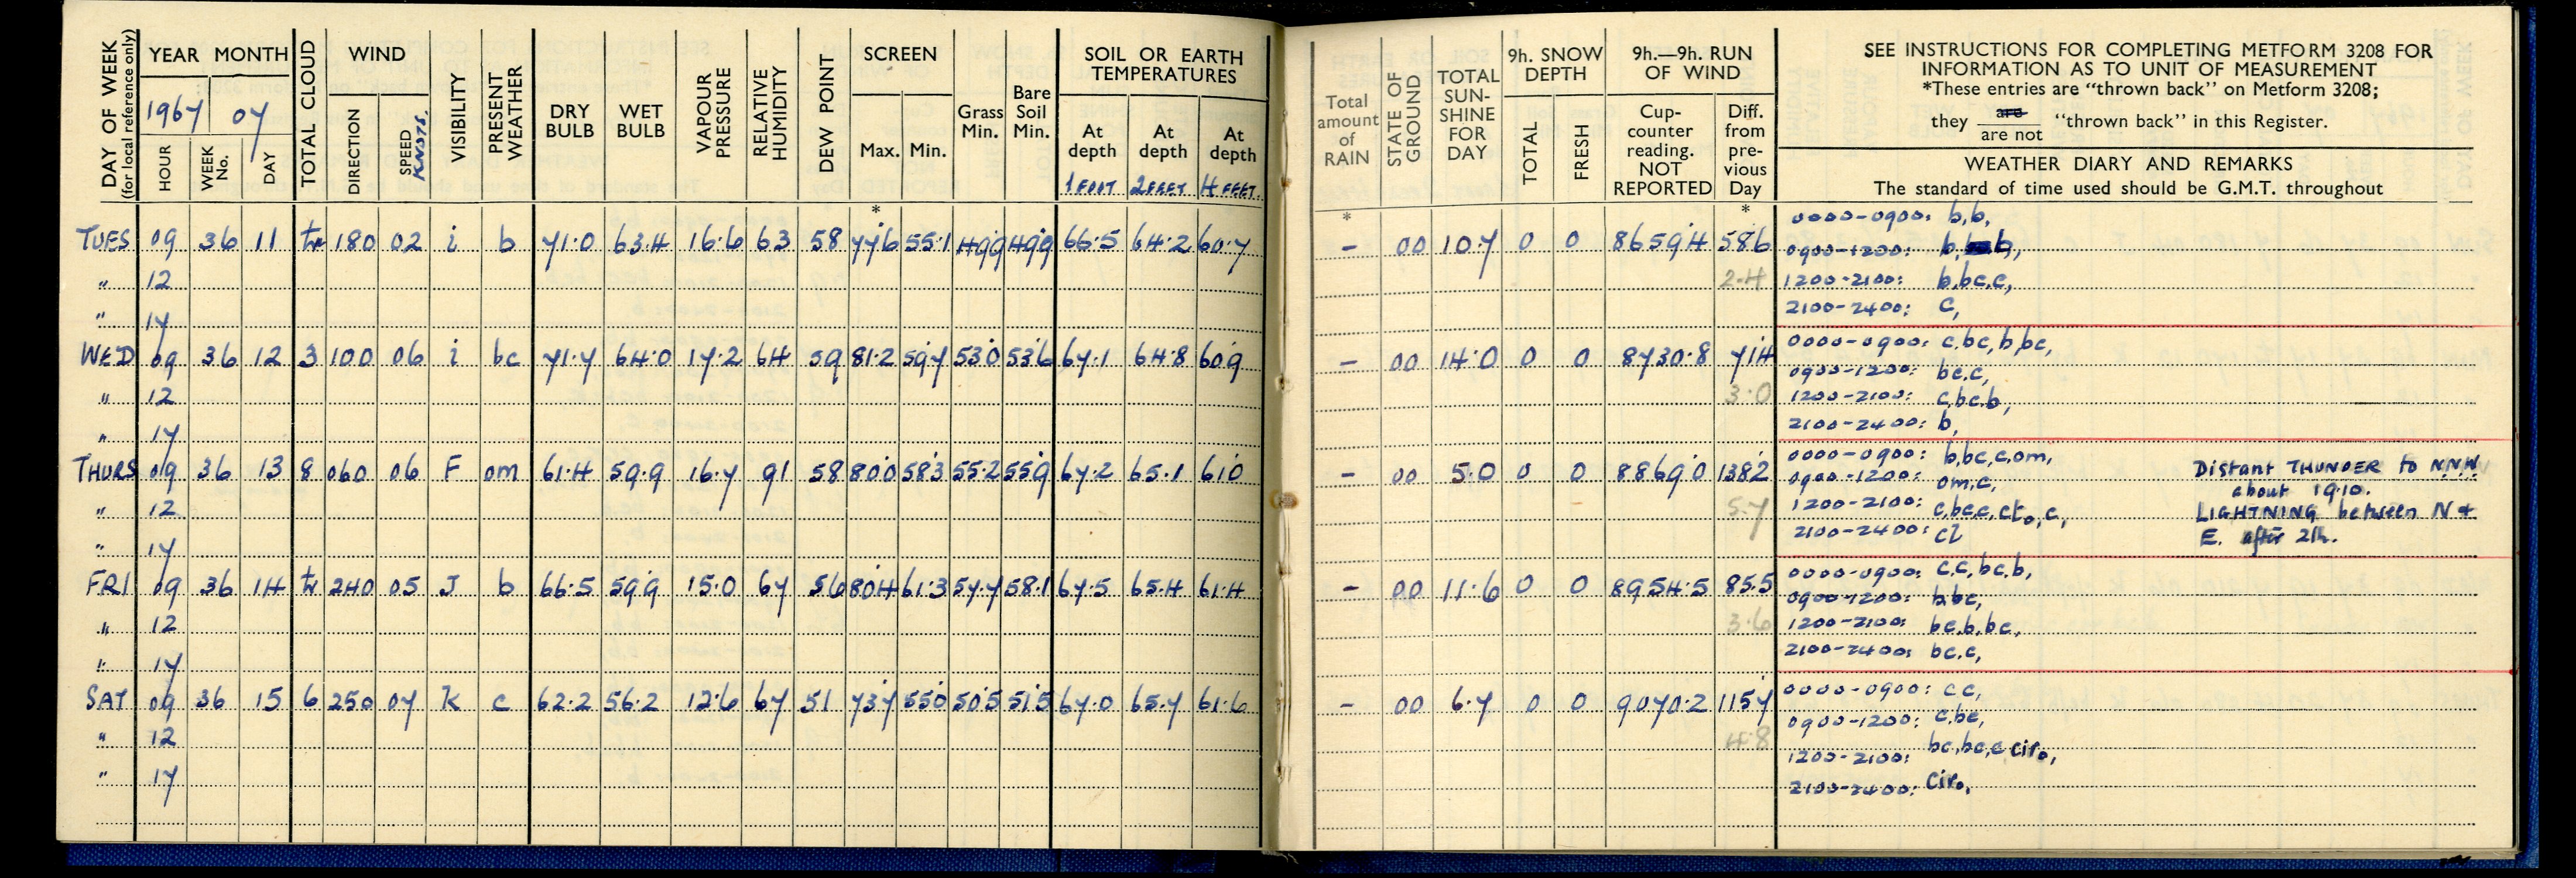 DAY OF WEEK (for local reference only) YEAR MONTH TOTAL CLOUD WIND VISIBILITY PRESENT WEATHER DRY BULB WET BULB VAPOUR PRESSURE RELATIVE HUMIDITY DEW POINT SCREEN Grass Min. Bare Soil Min. SOIL OR EARTH TEMPERATURES
1967 07
HOUR WEEK No. DAY DIRECTION SPEED KNOTS. Max. Min. At depth At depth At depth
1 FOOT 2 FEET 4 FEET.
*
TUES 09 36 11 tr 180 02 i b 71.0 63.4 16.6 63 58 77.6 55.1 49.9 49.9 66.5 64.2 60.7
" 12
" 17
WED 09 36 12 3 100 06 i bc 71.7 64.0 17.2 64 59 81.2 59.7 53.0 53.6 67.1 64.8 60.9
" 12
" 17
THURS 09 36 13 8 060 06 F om 61.4 59.9 16.7 91 58 80.0 58.3 55.2 55.9 67.2 65.1 61.0
" 12
" 17
FRI 09 36 14 tr 240 05 J b 66.5 59.9 15.0 67 56 80.4 61.3 57.7 58.1 67.5 65.4 61.4
" 12
" 17
SAT 09 36 15 6 250 07 K c 62.2 56.2 12.6 67 51 73.7 55.0 50.5 51.5 67.0 65.7 61.6
" 12
" 17
Total amount of RAIN STATE OF GROUND TOTAL SUN-SHINE FOR DAY 9h. SNOW DEPTH 9h.—9h. RUN OF WIND
TOTAL FRESH Cup-counter reading. NOT REPORTED Diff. from pre-vious Day
SEE INSTRUCTIONS FOR COMPLETING METFORM 3208 FOR
INFORMATION AS TO UNIT OF MEASUREMENT
*These entries are "thrown back" on Metform 3208;
they are / are not "thrown back" in this Register.
WEATHER DIARY AND REMARKS
The standard of time used should be G.M.T. throughout
* *
– 00 10.7 0 0 8659.4 58.6
2.4
0000-0900: b,b,
0900-1200: b, b,
1200-2100: b,bc,c,
2100-2400: c,
– 00 14.0 0 0 8730.8 71.4
3.0
0000-0900: c,bc,b,bc,
0900-1200: bc,c,
1200-2100: c,bc,b,
2100-2400: b,
– 00 5.0 0 0 8869.0 138.2
5.7
0000-0900: b,bc,c,om,
0900-1200: om,c,
1200-2100: c,bc,c,cto,c,
2100-2400: cl
Distant THUNDER to N.N.W.
about 1910.
LIGHTNING between N +
E. after 21h.
– 00 11.6 0 0 8954.5 85.5
3.6
0000-0900: c,c,bc,b,
0900-1200: b,bc,
1200-2100: bc,b,bc,
2100-2400: bc,c,
– 00 6.7 0 0 9070.2 115.7
4.8
0000-0900: c c,
0900-1200: c,bc,
1200-2100: bc,bc,c ciro,
2100-2400: ciro,